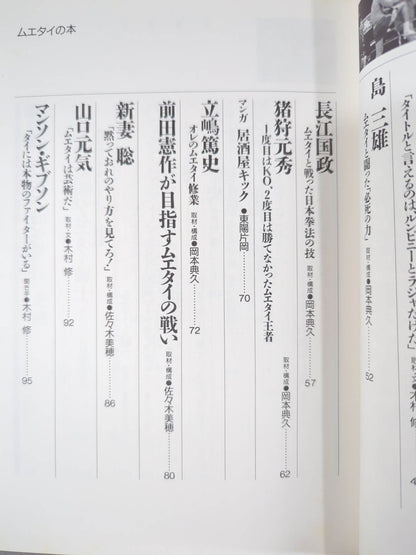 ムエタイの本
「タイトルと言えるのは、ルンピニーとラジャだけだ」
木村 修
島 三雄
ムエタイと闘った"必死の力"
取材・構成●岡本典久………52
長江国政
ムエタイと戦った日本拳法の技
取材・構成●岡本典久………57
猪狩元秀
1度目はKO、2度目は勝てなかったムエタイ王者
取材・構成●岡本典久………62
マンガ 居酒屋キック ●東陽片岡………70
立嶋篤史
オレのムエタイ修業
取材・構成●岡本典久………72
前田憲作が目指すムエタイの戦い
取材・構成●佐々木美穂………80
新妻 聡
「黙っておれのやり方を見てろ!」
取材・構成●佐々木美穂………86
山口元気
「ムエタイは芸術だ」
取材・文●木村 修………92
マンソン・ギブソン
「タイには本物のファイターがいる」
●木村 修………95